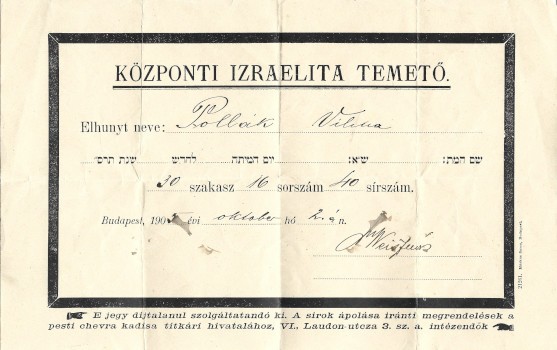 KÖZPONTI IZRAELITA TEMETŐ.
Elhunyt neve: Pollák Vilma
שם המת: ש"א: יום המיתה לחדש שנת תרס"
30 szakasz 16 sorszám 40 sírszám.
Budapest, 190 évi oktober hó 2. á n.
E jegy dijtalanul szolgáltatandó ki. A sírok ápolása iránti megrendelések a
pesti chevra kadisa titkári hivatalához, VI., Laudon-utcza 3. sz. a. intézendők